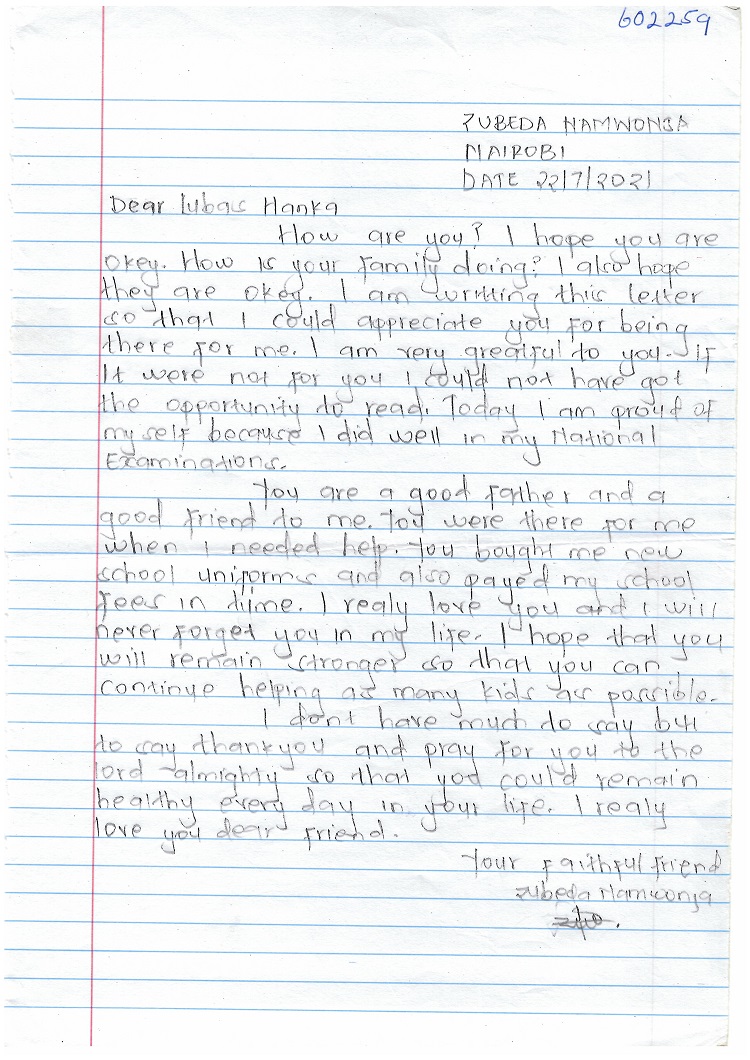 602259
ZUBEDA NAMWONJA
NAIROBI
DATE 22/7/2021
Dear lubas Hanka
How are you? I hope you are
okey. How is your family doing? I also hope
they are okey. I am writting this letter
so that I could appreciate you for being
there for me. I am very greatful to you. If
It were not for you I could not have got
the opportunity to read. Today I am proud of
my self because I did well in my National
Examinations.
You are a good father and a
good friend to me. You were there for me
when I needed help. You bought me new
school uniforms and also payed my school
fees in time. I realy love you and I will
never forget you in my life. I hope that you
will remain stronger so that you can
continue helping as many kids as possible.
I dont have much to say but
to say thankyou and pray for you to the
lord almighty so that you could remain
healthy every day in your life. I realy
love you dear friend.
Your faithful friend
Zubeda Namwonja